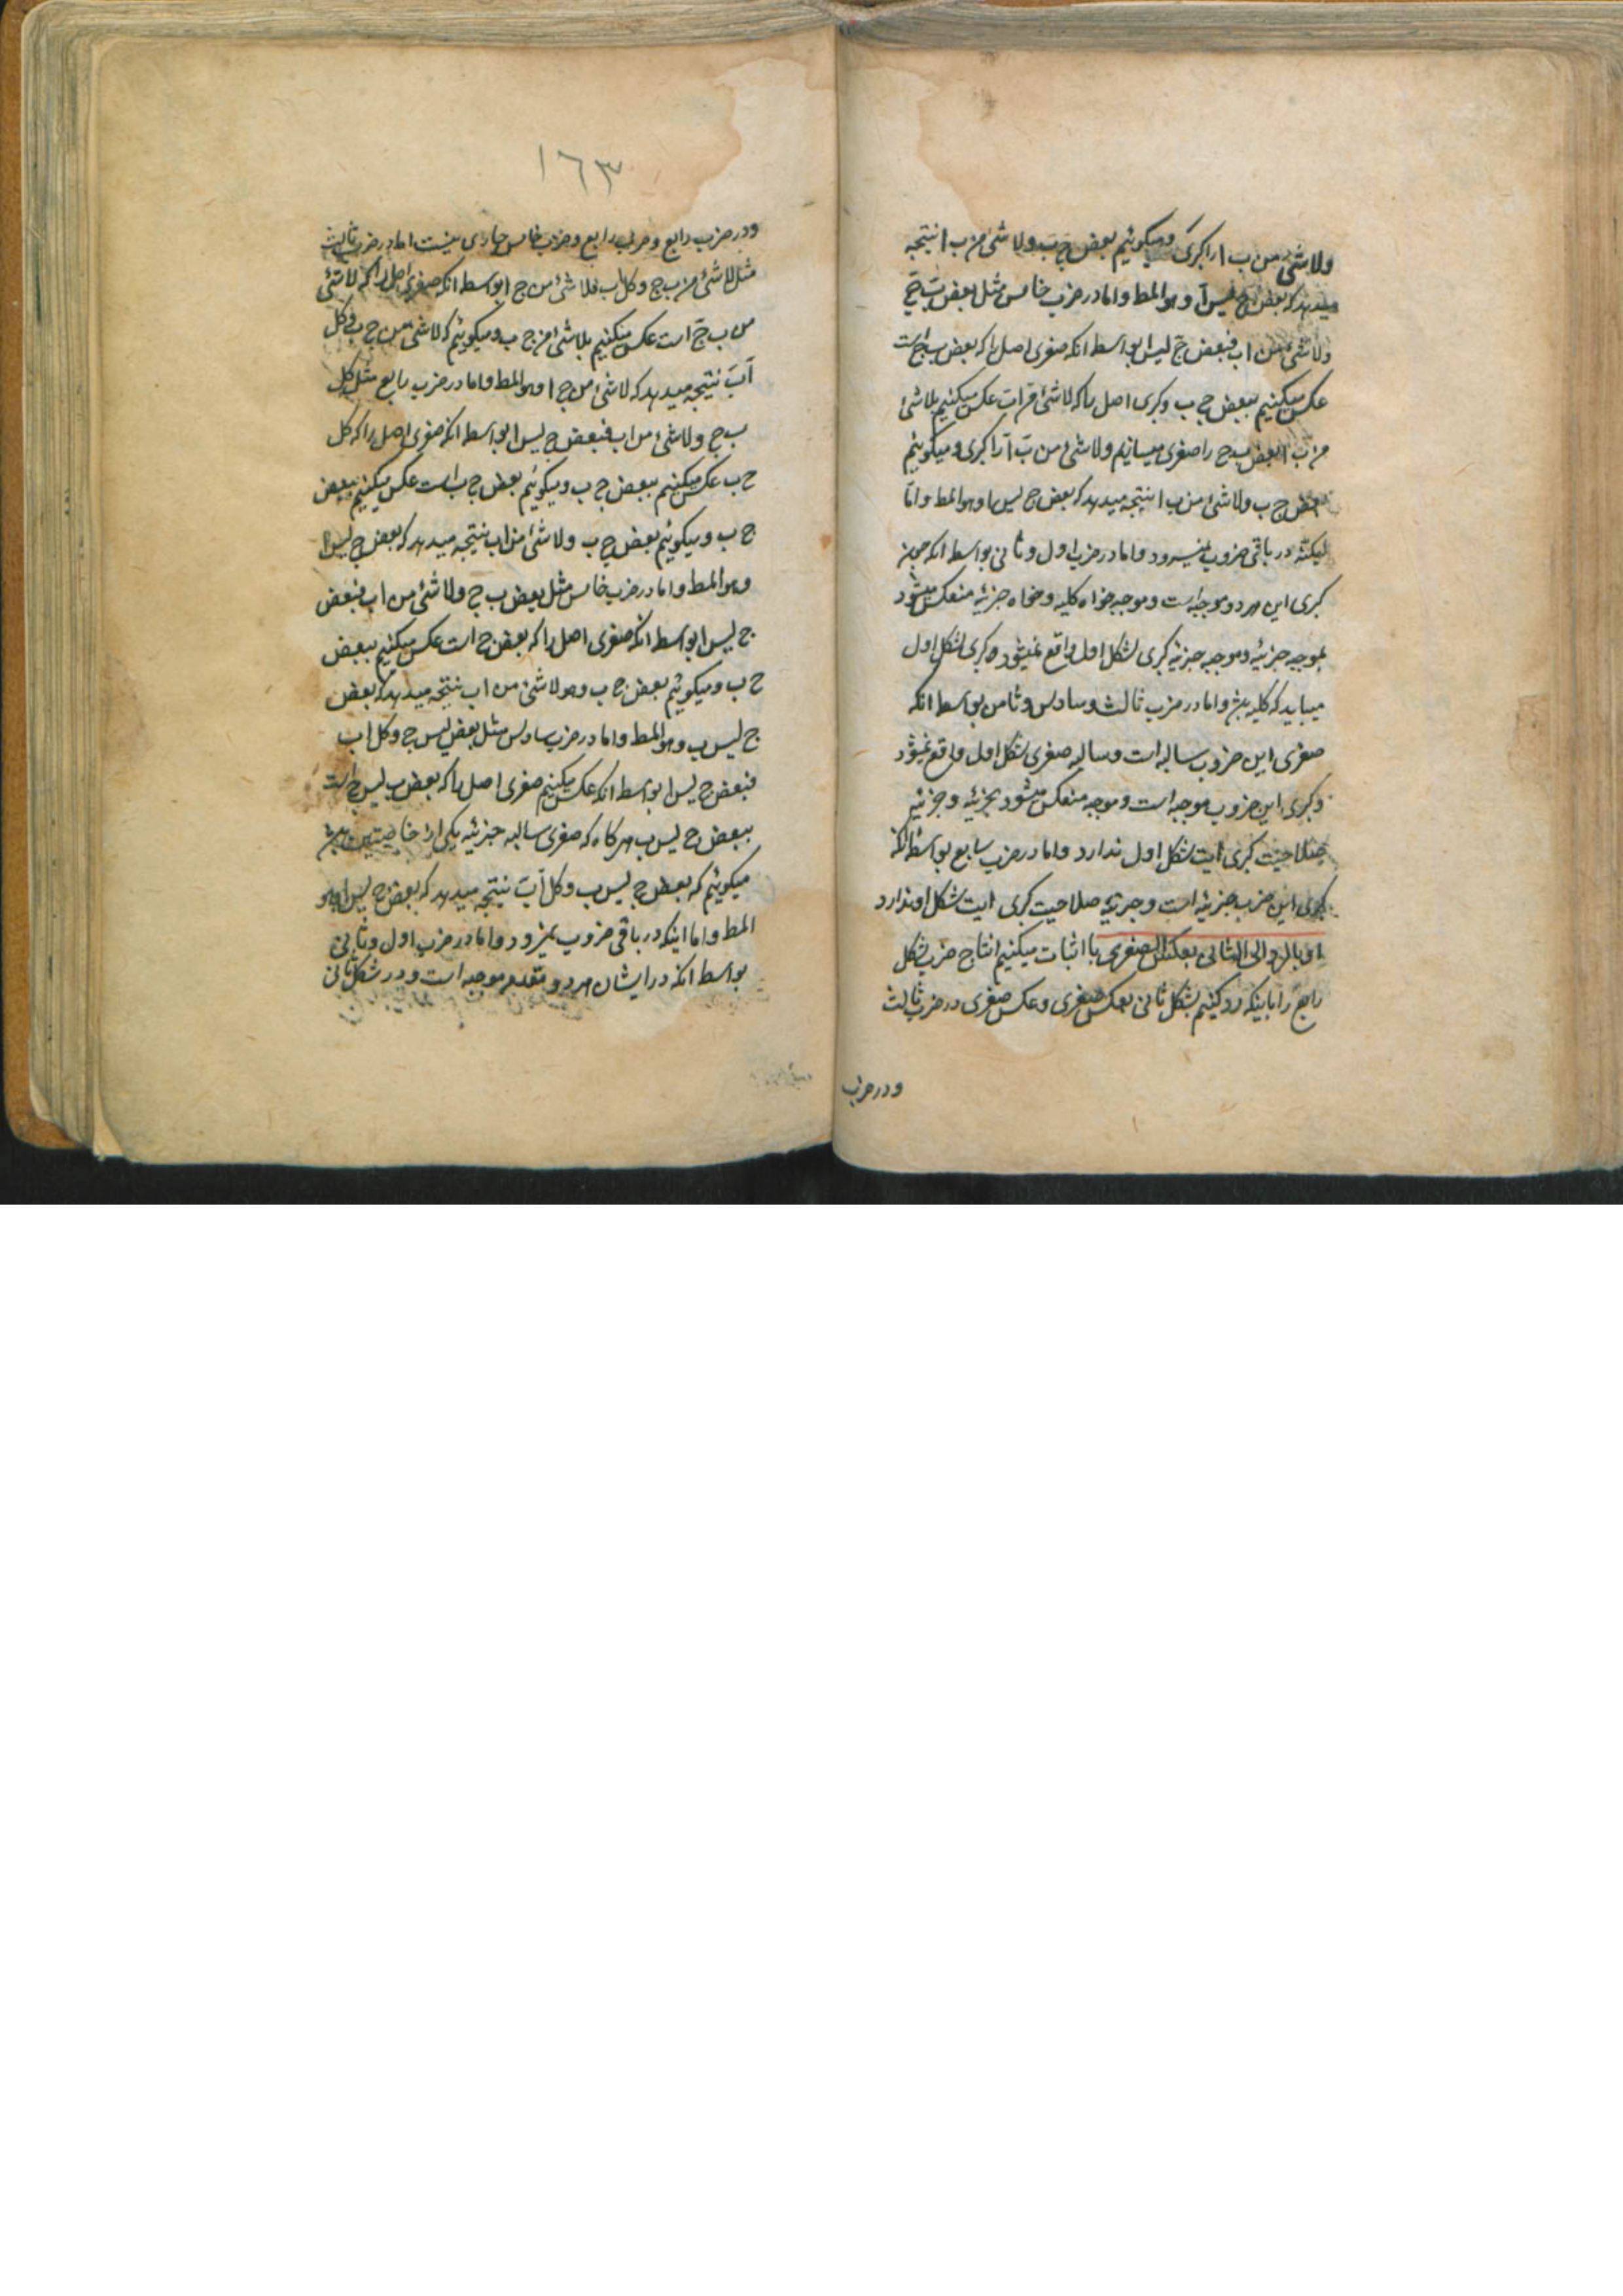 ولا شئ من ب ا را کبری ومیکوئیم بعض ج ب ولا شئ من ب ا نتیجه
میدهد که بعض ج لیس آ وهو المط واما در ضرب خامس مثل بعض ب ج
ولا شئ من ا ب فبعض ج لیس ا بواسطه انکه صغری اصل را که بعض ب ج است
عکس میکنیم ببعض ج ب وکبری اصل را که لا شئ من ا ب است عکس میکنیم بلا شئ
من ب آ بعض ج را صغری میسازیم ولا شئ من ب آ را کبری ومیکوئیم
بعض ج ب ولا شئ من ب ا نتیجه میدهد که بعض ج لیس ا وهو المط واما
اینکه در باقی ضروب نمیرود واما در ضرب اول وثانی بواسطه انکه چون
کبری این هر دو موجبه است وموجبه خواه کلیه وخواه جزئیه منعکس میشود
بموجبه جزئیه وموجبه جزئیه کبری شکل اول واقع نمیشود که کبری شکل اول
میباید که کلیه باشد واما در ضرب ثالث وسادس وثامن بواسطه انکه
صغری این ضروب سالبه است وسالبه صغری شکل اول واقع نمیشود
وکبری این ضروب موجبه است وموجبه منعکس میشود بجزئیه وجزئیه
صلاحیت کبری ایت شکل اول ندارد واما در ضرب سابع بواسطه انکه
کبری این ضرب جزئیه است وجزئیه صلاحیت کبری ایت شکل اول ندارد
او بالرد الی الثانی بعکس الصغری یا اثبات میکنیم انتاج ضرب شکل
رابع را باینکه رد کنیم بشکل ثانی بعکس صغری وعکس صغری در ضرب ثالث
ودر ضرب
١٦٣
ودر ضرب رابع وضرب خامس جاری نیست اما در ضرب ثالث
مثل لا شئ من ب ج وکل ا ب فلا شئ من ج ا بواسطه انکه صغری اصل را که لا شئ
من ب ج است عکس میکنیم بلا شئ من ج ب ومیکوئیم که لا شئ من ج ب وکل
آ ب نتیجه میدهد که لا شئ من ج ا وهو المط واما در ضرب رابع مثل کل
ب ج ولا شئ من ا ب فبعض ج لیس ا بواسطه انکه صغری اصل را که کل
ج ب عکس میکنیم ببعض ج ب ومیکوئیم بعض ج ب است عکس میکنیم ببعض
ج ب ومیکوئیم بعض ج ب ولا شئ من ا ب نتیجه میدهد که بعض ج لیس ا
وهو المط واما در ضرب خامس مثل بعض ب ج ولا شئ من ا ب فبعض
ج لیس ا بواسطه انکه صغری اصل را که بعض ج است عکس میکنیم ببعض
ج ب ومیکوئیم بعض ج ب وهو لا شئ من ا ب نتیجه میدهد که بعض
ج لیس ب وهو المط واما در ضرب سادس مثل بعض لیس ج وکل ا ب
فبعض ج لیس ا بواسطه انکه عکس میکنیم صغری اصل را که بعض ب لیس ج است
ببعض ج لیس ب هرکاه که صغری سالبه جزئیه یکی از خاصیتین باشد
میکوئیم که بعض ج لیس ب وکل آ ب نتیجه میدهد که بعض ج لیس ا وهو
المط واما اینکه در باقی ضروب نمیرود واما در ضرب اول وثانی
بواسطه انکه در ایشان هر دو مقدمه موجبه است ودر شکل ثانی